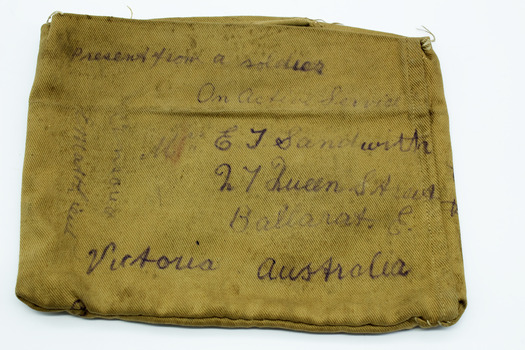 Present from a soldier
On Active Service
Mrs E T Sandwith
27 Queen Street
Ballarat E.
Victoria Australia